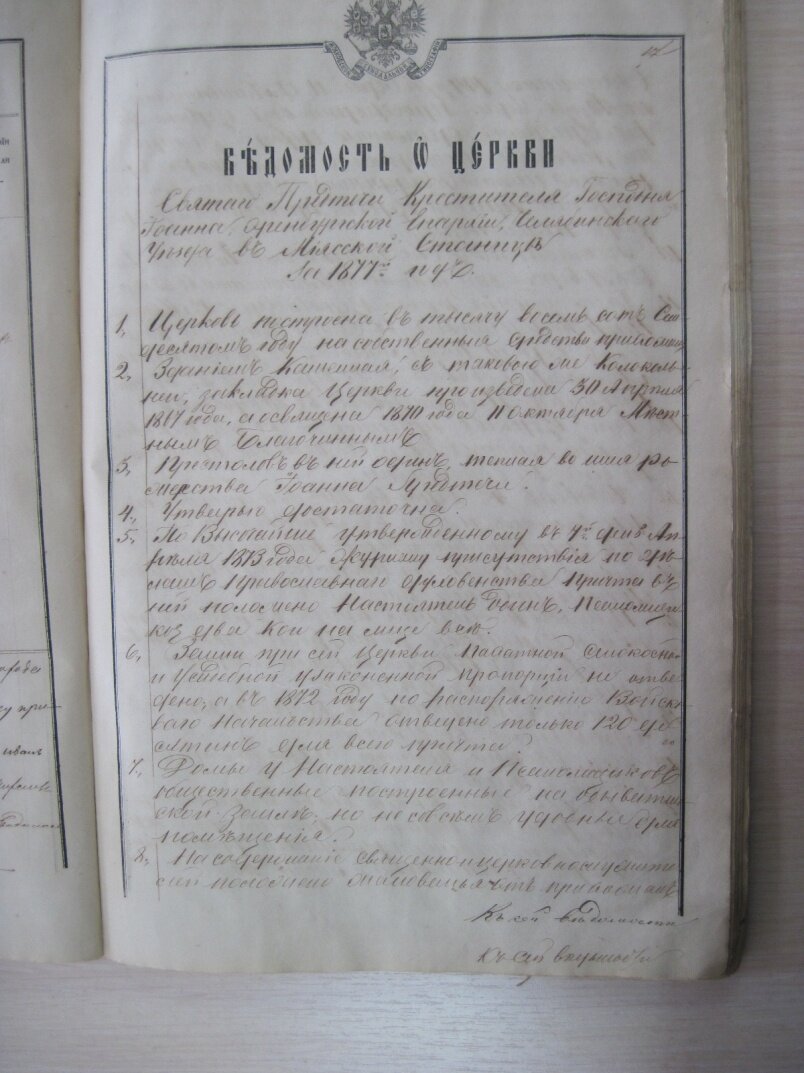 ВѢ́ДОМОСТЬ Ѽ ЦЕ́РКВИ
Святаго Предтечи Крестителя Господня
Іоанна, Оренбургской Епархіи, Челябинскаго
Уѣзда въ Міясской Станицѣ
За 1877й годъ.
1., Церковь построена въ тысячу восемь сотъ Сем-
десятомъ году на собственныя средства прихожанъ
2., Зданіемъ Каменная, съ таковою же Колоколь-
ней, закладка Церкви произведена 30 Апрѣля
1867 года, а освящена 1870 года 11 Октября Мѣст-
нымъ Благочиннымъ
3., Престоловъ въ ней одинъ, теплая во имя ро-
жества Іоанна Предтечи.
4., Утварью достаточна.
5., По Высочайше утвержденному въ 7й день Ап-
рѣля 1873 года Журналу присутствія по дѣ-
ламъ Православнаго духовенства Причта въ
ней положено Настоятель одинъ, Псаломщи-
ковъ два кои на лице
6., Земли при сей Церкви Пахатной Сѣнокосной
и Усадебной узаконенной пропорціи не отве-
дено, а въ 1872 году по распоряженію Войско-
ваго Начальства отведено только 120 де-
сятинъ для всего причта
7., Домы у Настоятеля и Псаломщиковъ
общественные построенные на
земли, но не совсемъ удобныя для
помѣщенія.
8., На содержаніе священно и церковнослужите-
лей положено жалованья отъ прихожанъ
Къ сей вѣдомости
къ сей